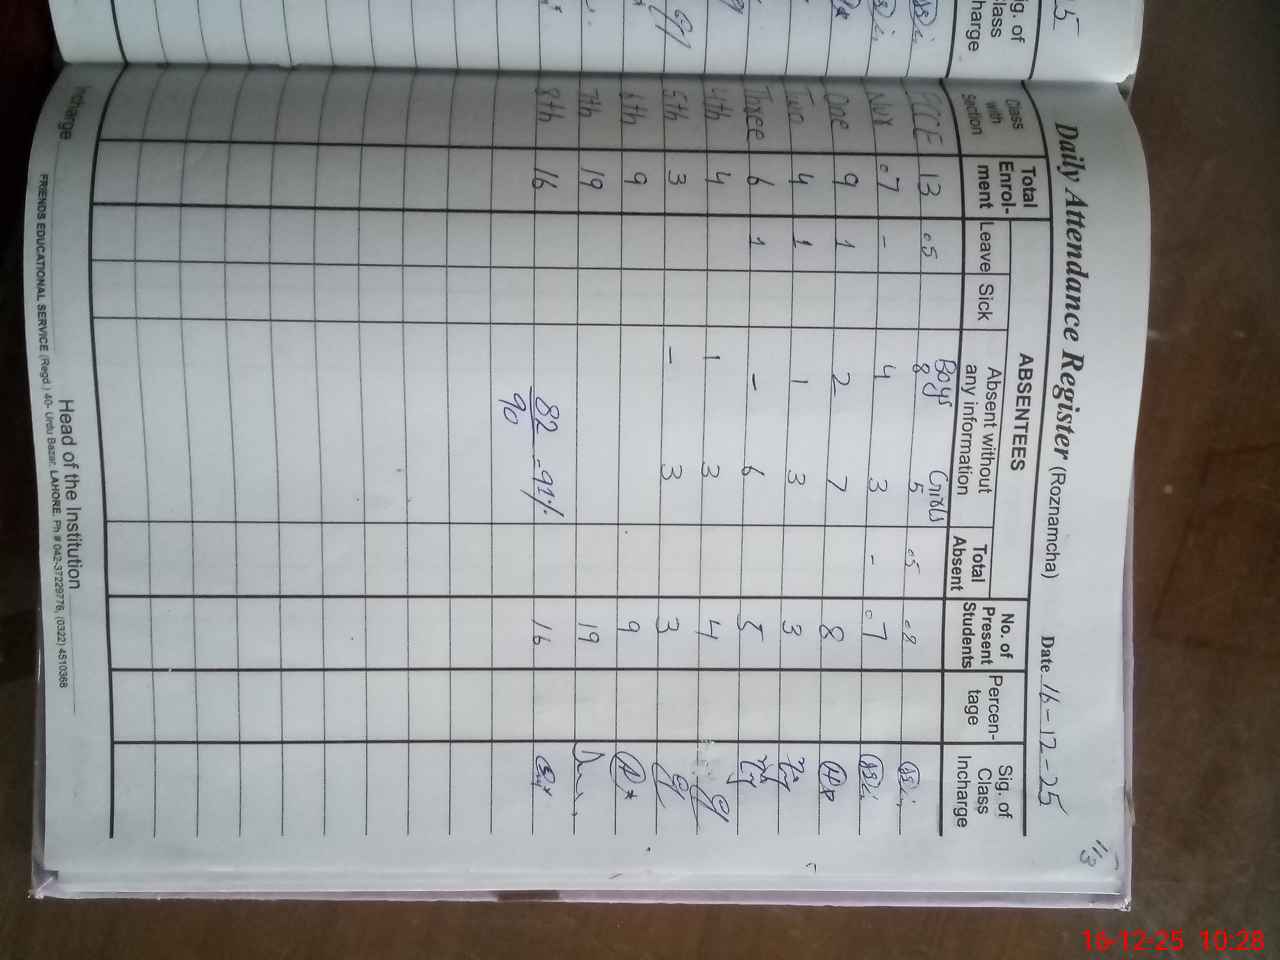 25
Sig. of
Class
Incharge
Daily Attendance Register (Roznamcha) Date 16-12-25
Class with section | Total Enrol-ment | ABSENTEES | No. of Present Students | Percen-tage | Sig. of Class Incharge
Leave | Sick | Absent without any information | Total Absent
Boys Girls
ECCE 13 05 8 5 05 08
Nur 07 - 4 3 - 07
One 9 1 2 7 8
Two 4 1 1 3 3
Three 6 1 - 6 5
4th 4 1 3 4
5th 3 - 3 3
6th 9 9
7th 19 19
8th 16 16
82/90 = 91%
Incharge
Head of the Institution
FRIENDS EDUCATIONAL SERVICE (Regd.) 40- Urdu Bazar, LAHORE. Ph # 042-37229776, (0322) 4510368
16-12-25 10:28